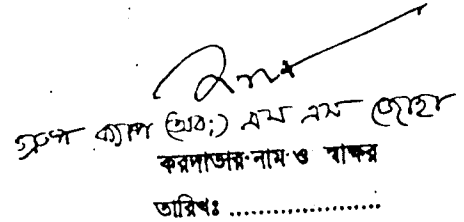 গ্রুপ ক্যাপ (অবঃ) এম এম জোহা
করদাতার নাম ও স্বাক্ষর
তারিখঃ .....................